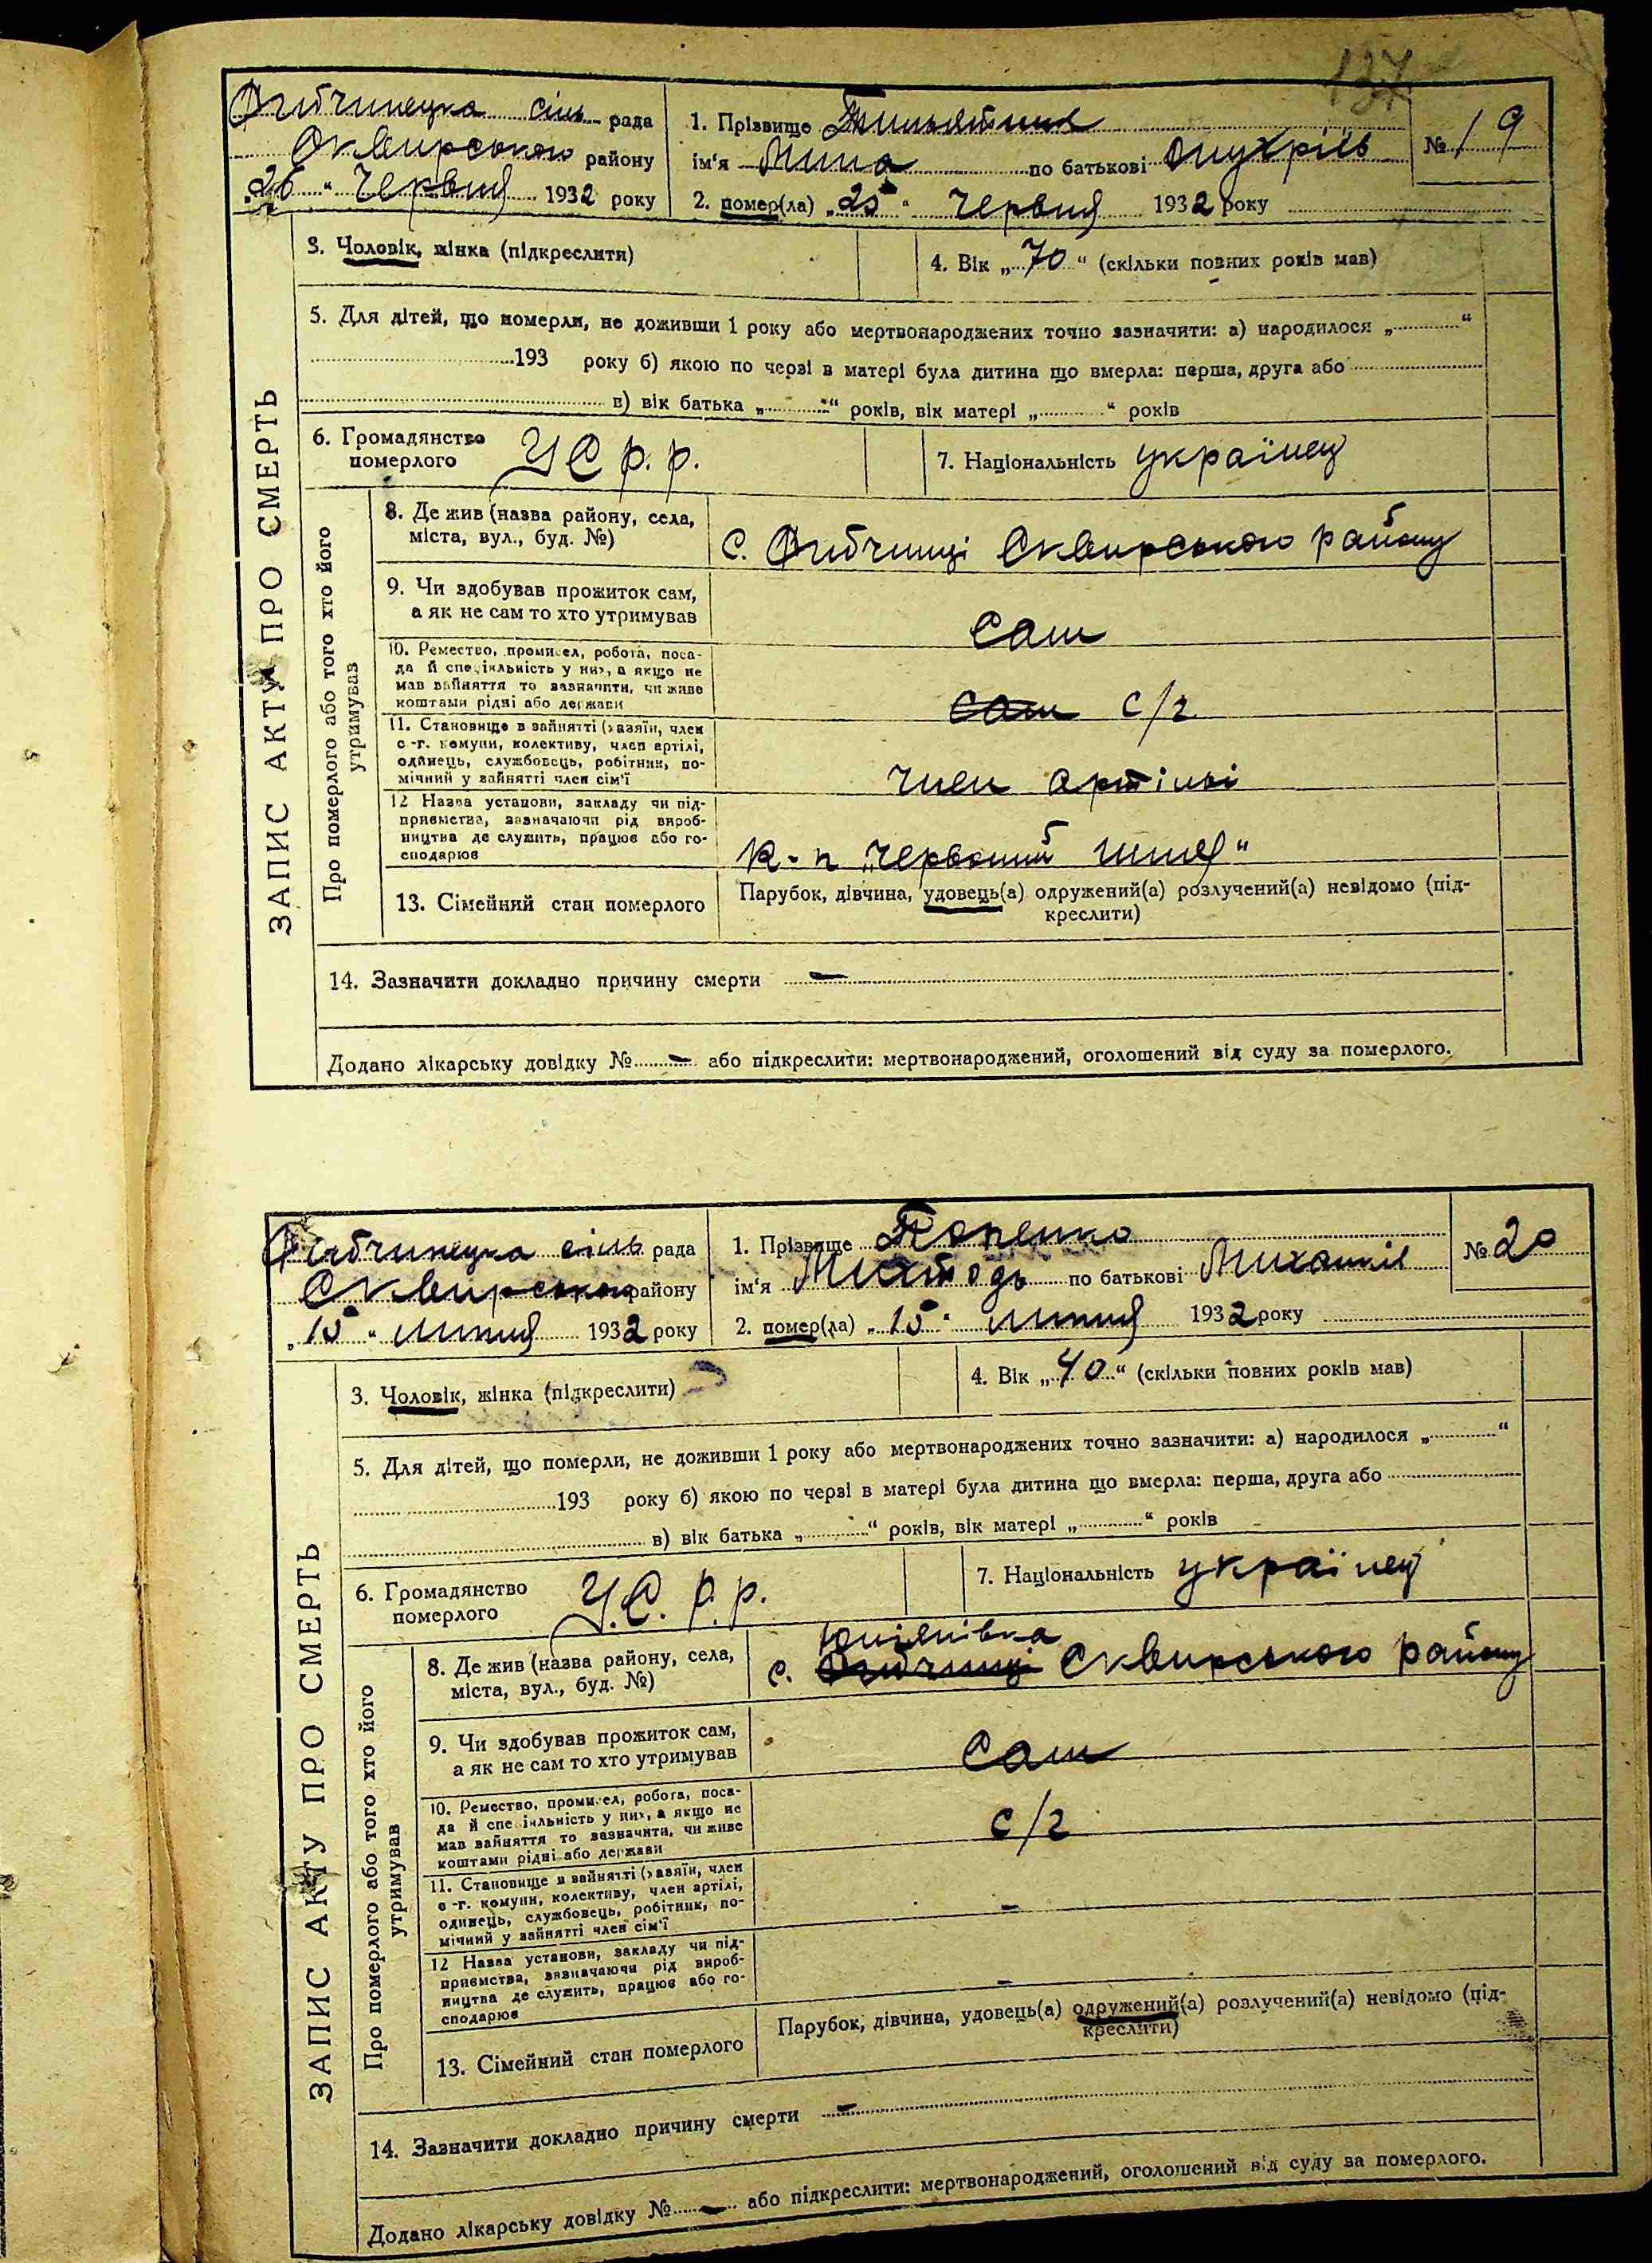 137
Дибчинецка сіль рада
Сквирського району
„26“ Червня 1932 року
1. Прізвище
ім'я Мина по батькові Онухріїв
№ 19
2. помер(ла) „25“ Червня 1932 року
3. Чоловік, жінка (підкреслити)
4. Вік „70“ (скільки повних років мав)
5. Для дітей, що померли, не доживши 1 року або мертвонароджених точно зазначити: а) народилося „ “
193 року б) якою по черзі в матері була дитина що вмерла: перша, друга або
в) вік батька „ “ років, вік матері „ “ років
6. Громадянство
померлого
УС р.р.
7. Національність українец
ЗАПИС АКТУ ПРО СМЕРТЬ
Про померлого або того хто його
утримував
8. Де жив (назва району, села,
міста, вул., буд. №)
с. Дибчинці Сквирського району
9. Чи здобував прожиток сам,
а як не сам то хто утримував
сам
10. Ремество, промисел, робота, поса-
да й спеціяльність у них, а якщо не
мав зайняття то зазначити, чи живе
коштами рідні або держави
сам с/г
11. Становище в зайнятті (хазяїн, член
с-г. комуни, колективу, член артілі,
одинець, службовець, робітник, по-
мічний у зайнятті член сім'ї
член артілі
12 Назва установи, закладу чи під-
приємства, зазначаючи рід вироб-
ництва де служить, працює або го-
сподарює
к-п „Червоний шлях“
13. Сімейний стан померлого
Парубок, дівчина, удовець(а) одружений(а) розлучений(а) невідомо (під-
креслити)
14. Зазначити докладно причину смерти —
Додано лікарську довідку № — або підкреслити: мертвонароджений, оголошений від суду за померлого.
Дибчинецка сіль рада
Сквирського району
„15“ липня 1932 року
1. Прізвище Попенко
ім'я Митодь по батькові Михайлів
№ 20
2. помер(ла) „15“ липня 1932 року
3. Чоловік, жінка (підкреслити)
4. Вік „40“ (скільки повних років мав)
5. Для дітей, що померли, не доживши 1 року або мертвонароджених точно зазначити: а) народилося „ “
193 року б) якою по черзі в матері була дитина що вмерла: перша, друга або
в) вік батька „ “ років, вік матері „ “ років
6. Громадянство
померлого
У.С.р.р.
7. Національність українец
ЗАПИС АКТУ ПРО СМЕРТЬ
Про померлого або того хто його
утримував
8. Де жив (назва району, села,
міста, вул., буд. №)
с. Дибчинці Сквирського району
9. Чи здобував прожиток сам,
а як не сам то хто утримував
сам
10. Ремество, промисел, робота, поса-
да й спеціяльність у них, а якщо не
мав зайняття то зазначити, чи живе
коштами рідні або держави
с/г
11. Становище в зайнятті (хазяїн, член
с-г. комуни, колективу, член артілі,
одинець, службовець, робітник, по-
мічний у зайнятті член сім'ї
—
12 Назва установи, закладу чи під-
приємства, зазначаючи рід вироб-
ництва де служить, працює або го-
сподарює
—
13. Сімейний стан померлого
Парубок, дівчина, удовець(а) одружений(а) розлучений(а) невідомо (під-
креслити)
14. Зазначити докладно причину смерти —
Додано лікарську довідку № — або підкреслити: мертвонароджений, оголошений від суду за померлого.